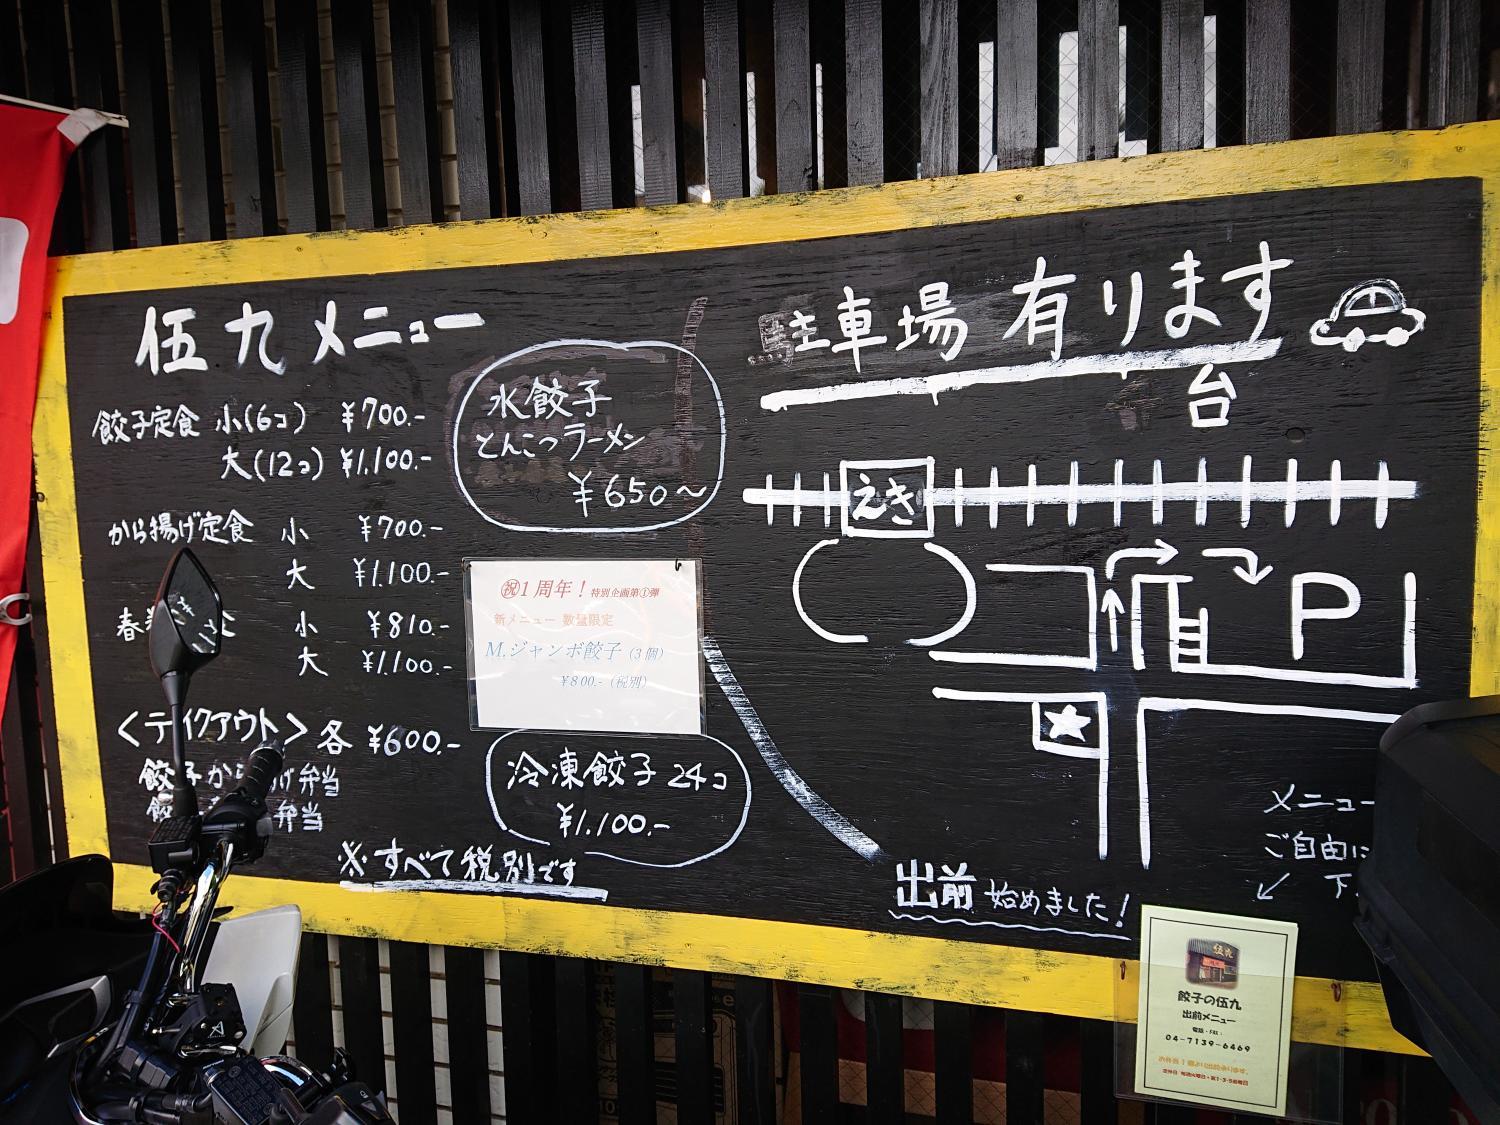 伍九メニュー
餃子定食 小(6コ) ¥700.-
大(12コ) ¥1.100.-
から揚げ定食 小 ¥700.-
大 ¥1.100.-
春 小 ¥810.-
大 ¥1.100.-
<テイクアウト> 各 ¥600.-
餃子から げ弁当
餃 弁当
※すべて税別です
水餃子
とんこつラーメン
¥650~
㊗1周年!特別企画第①弾
新メニュー 数量限定
M.ジャンボ餃子(3個)
¥800.-(税別)
冷凍餃子 24コ
¥1.100.-
駐車場 有ります
台
えき
P
出前 始めました!
メニュー
ご自由に
下
伍九
餃子の伍九
出前メニュー
電話・FAX:
04-7139-6469